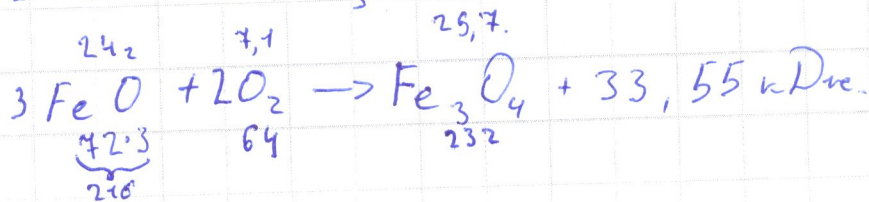 24г 7,1 25,7.
3 FeO + 2O₂ —> Fe₃O₄ + 33,55 кДж.
72·3 64 232
216